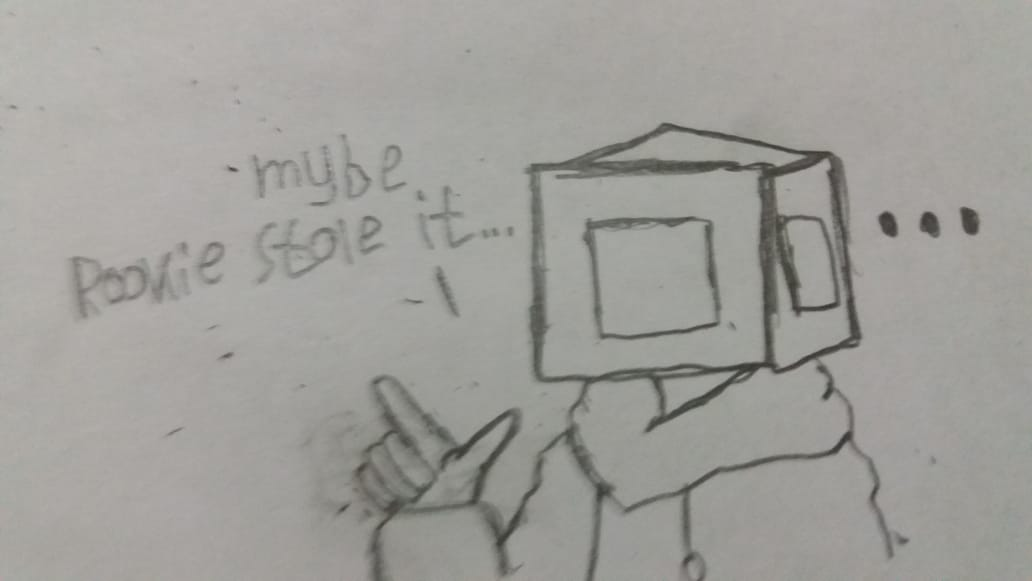 mybe
Rookie stole it...